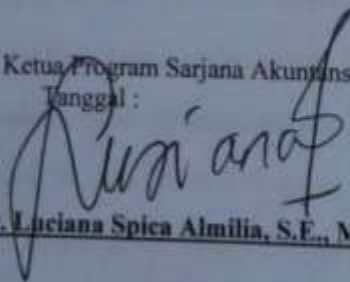 Ketua Program Sarjana Akuntans
Tanggal :
Lusiana
. Luciana Spica Almilia, S.E., M